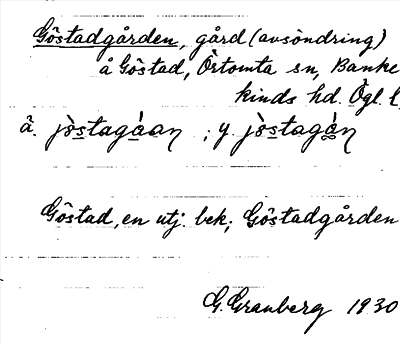 Göstadgården, gård (avsöndring)
å Göstad, Örtomta sn, Banke
kinds hd. Ögl. l
ä. jò̀stagáan ; y. jò̀stagån
Göstad, en utj. bek; Göstadgården
G. Granberg 1930